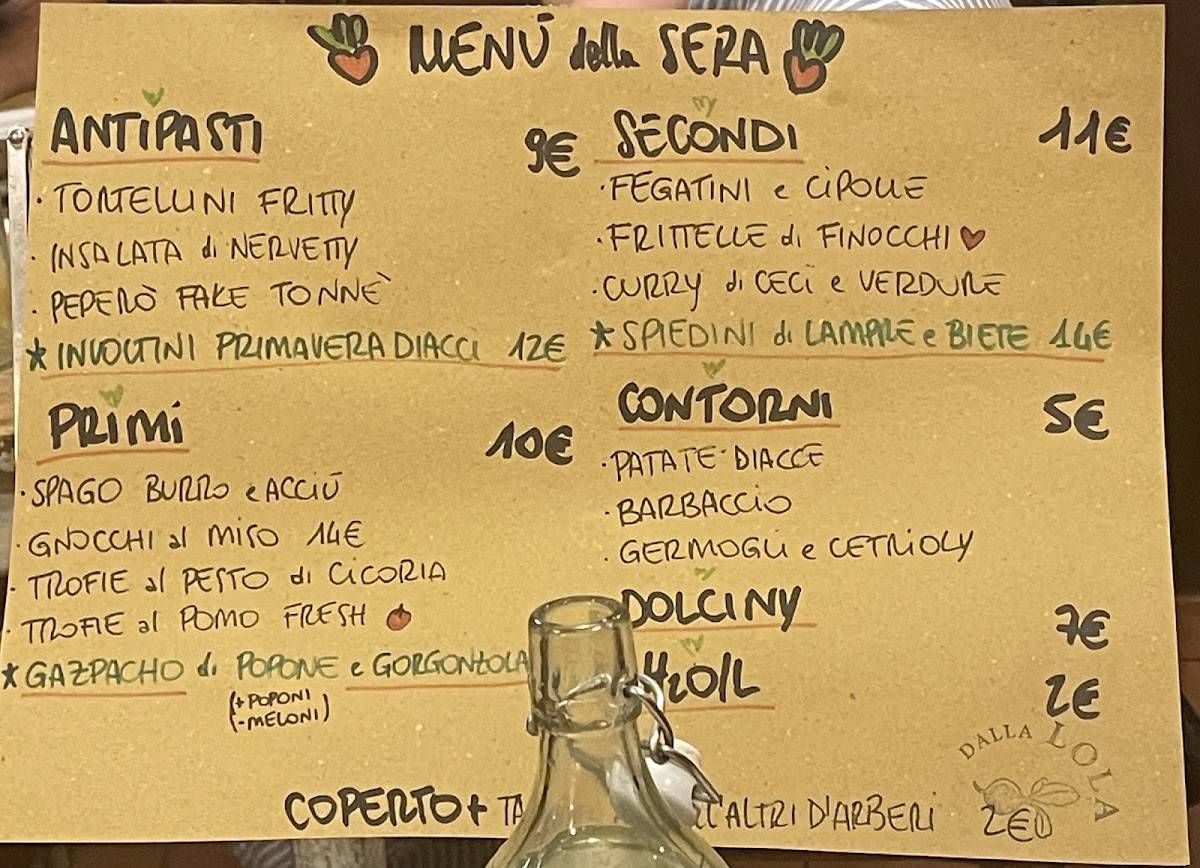 MENÙ della SERA
ANTIPASTI 9€
· TORTELLINI FRITTY
· INSALATA di NERVETTY
· PEPERÒ FAKE TONNÈ
* INVOLTINI PRIMAVERA DIACCI 12€
PRIMI 10€
· SPAGO BURRO e ACCIÙ
· GNOCCHI al MISO 14€
· TROFIE al PESTO di CICORIA
· TROFIE al POMO FRESH
* GAZPACHO di POPONE e GORGONZOLA
(+ POPONI
- MELONI)
SECONDI 11€
· FEGATINI e CIPOLLE
· FRITTELLE di FINOCCHI
· CURRY di CECI e VERDURE
* SPIEDINI di LAMPRE e BIETE 14€
CONTORNI 5€
· PATATE DIACCE
· BARBACCIO
· GERMOGLI e CETRIOLY
DOLCINY 7€
H2O/L 2€
DALLA LOLA
COPERTO + D'ARBERI 2€